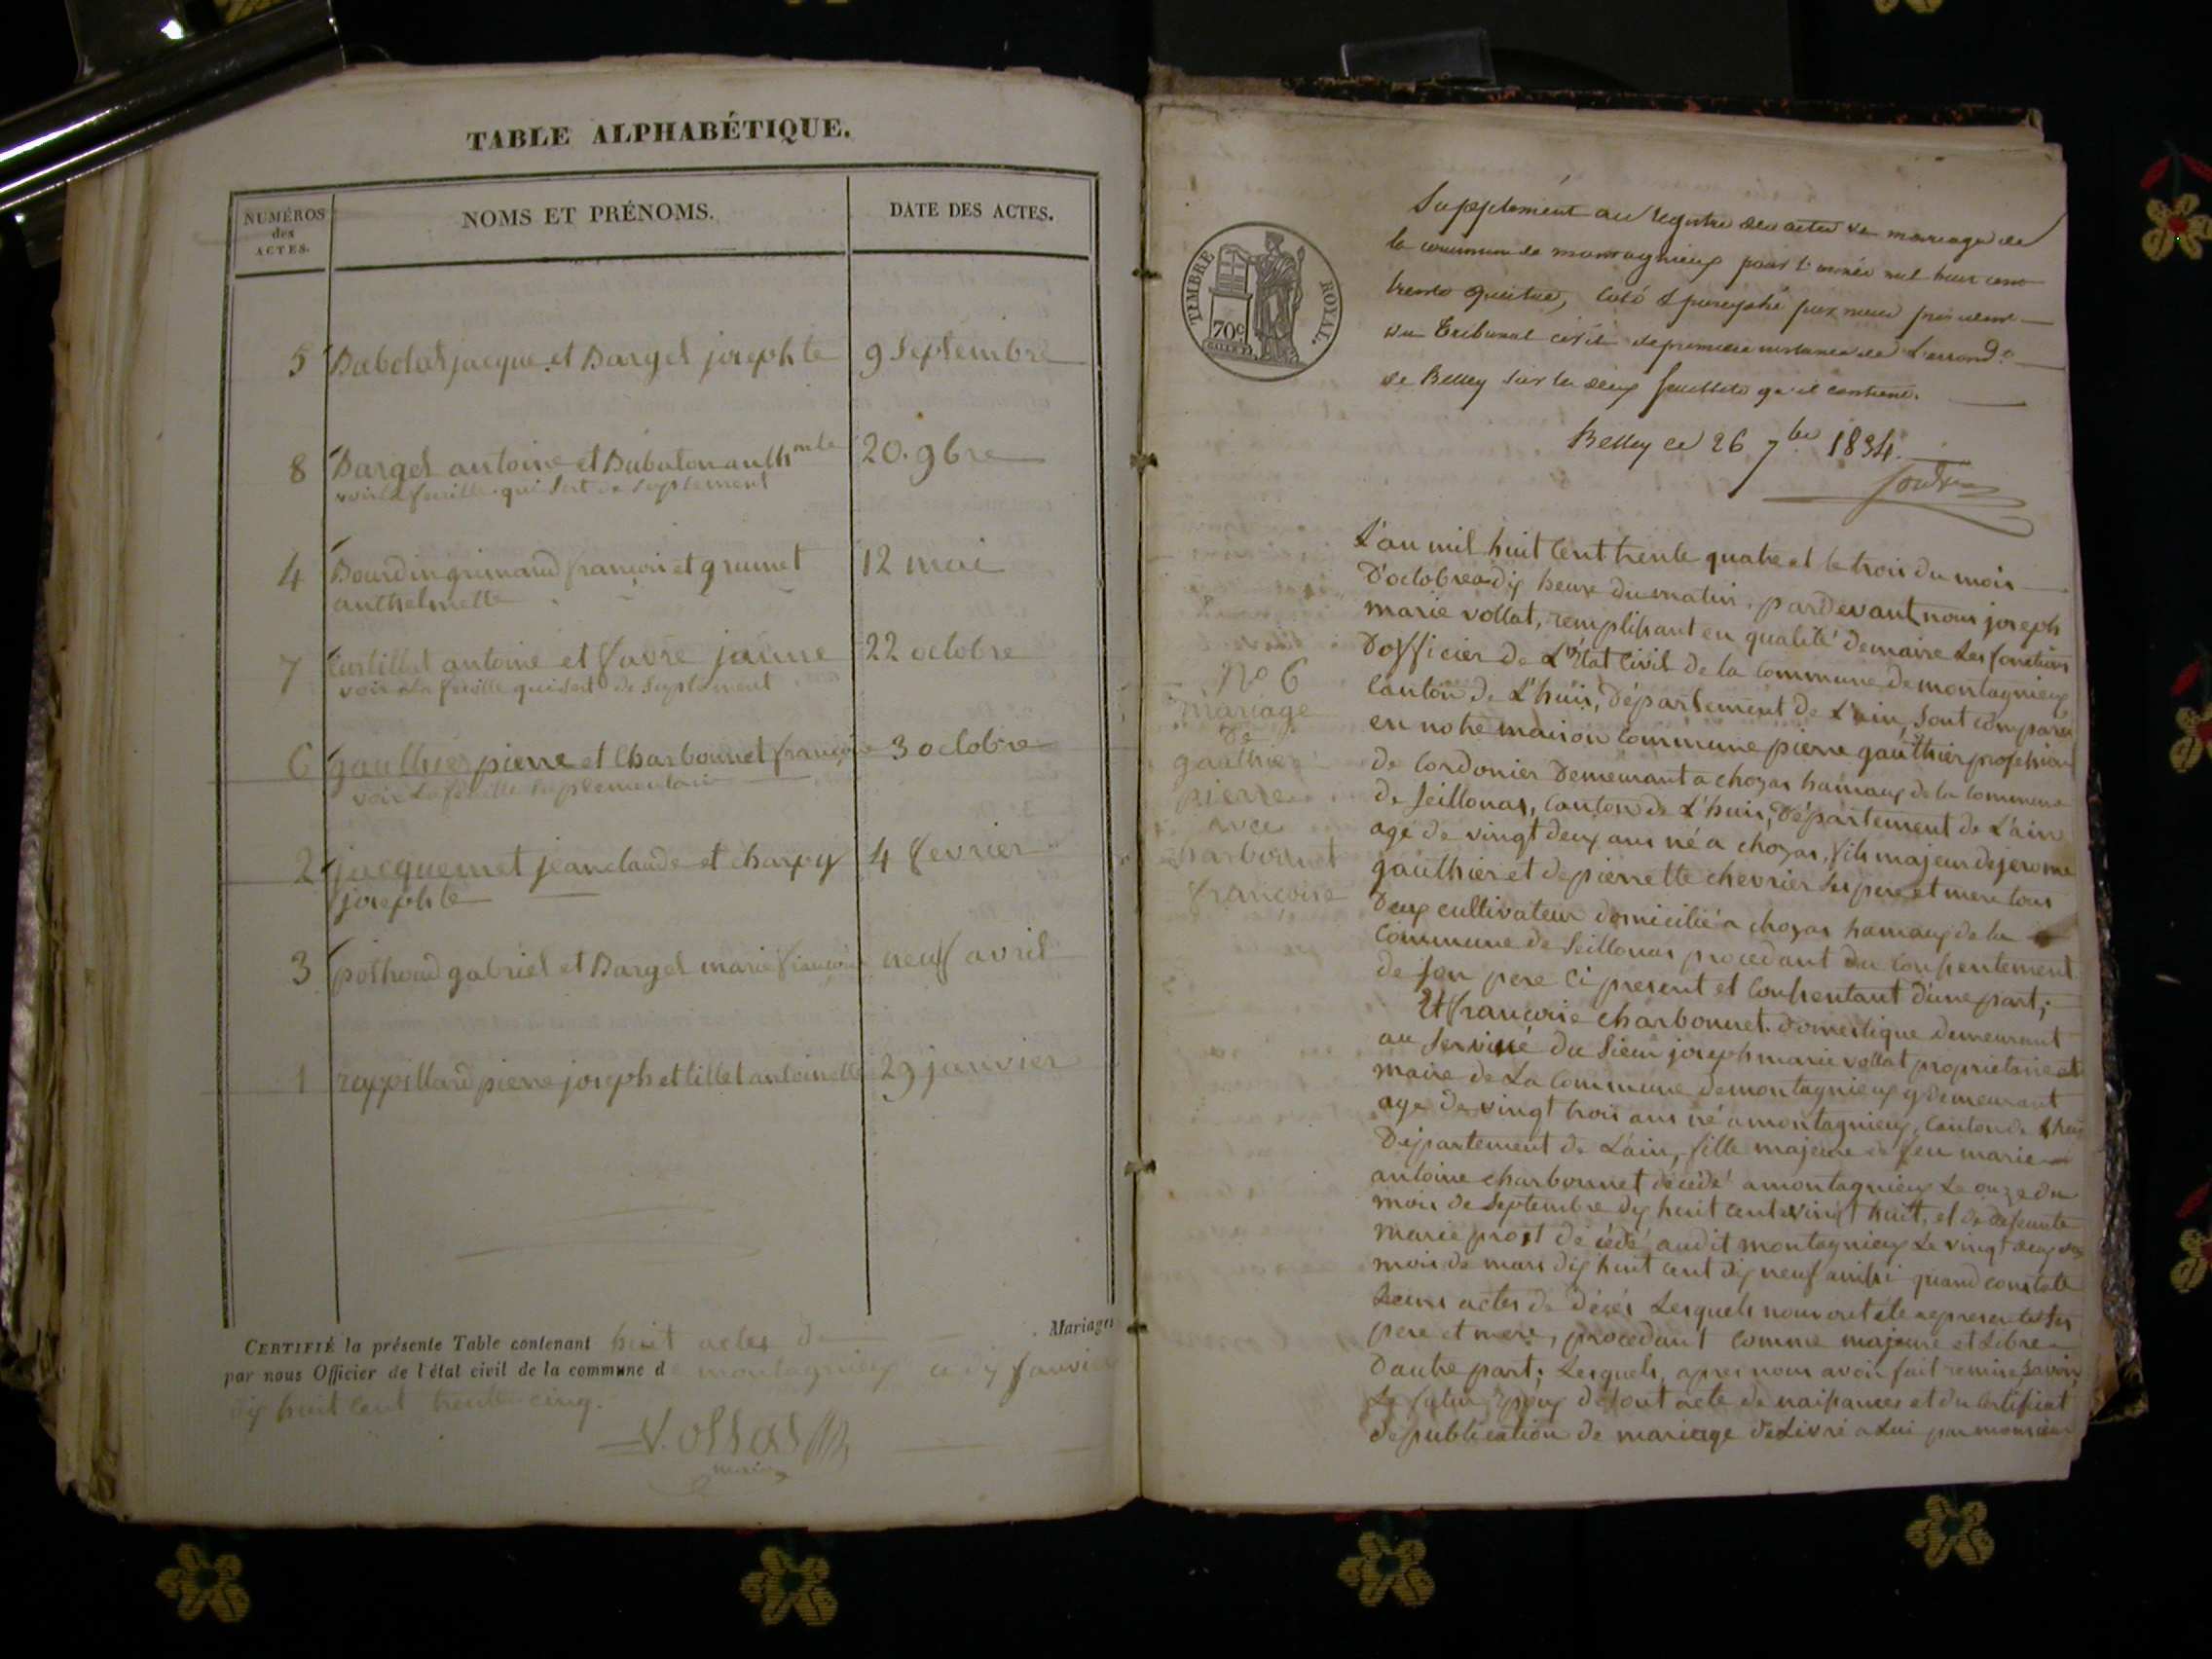 TABLE ALPHABÉTIQUE.
NUMÉROS des ACTES.
NOMS ET PRÉNOMS.
DATE DES ACTES.
5 Babolat jacque et Bargel josephte 9 Septembre
8 Bargel antoine et Babolon anth 20. 9bre
voir la feuille qui sert de suplement
4 Bourdin grimaud francois et grumet 12 mai
anthelmette
7 Curtillet antoine et favre jeanne 22 octobre
voir la feuille qui sert de suplement
6 gauthier pierre et Charbonnet francoise 3 octobre
voir la feuille suplementaire
2 jacquemet jean claude et charpy 4 fevrier
josephte
3 pothoud gabriel et Bargel marie francoise neuf avril
1 rappillard pierre joseph et tillet antoinette 29 janvier
Mariages
CERTIFIÉ la présente Table contenant huit actes de
par nous Officier de l'état civil de la commune de montagnieux ce dix janvier
dix huit cent trente cinq.
Vollat
maire
TIMBRE ROYAL.
70c
Supplément au registre des actes de mariage de
la commune de montagnieux pour l'année mil huit cent
trente quatre, coté & paraphé par nous président
du Tribunal civil de première instance de l'arrond.
de Belley sur les deux feuillets qu'il contient.
Belley ce 26 7bre 1834.
L'an mil huit cent trente quatre et le trois du mois
D'octobre a dix heure du matin, pardevant nous joseph
marie vollat, remplissant en qualité de maire les fonctions
D'officier de L'État Civil de la Commune de montagnieux
Canton de L'huis, Département de L'ain, Sont comparu
en notre maison Commune pierre gauthier profession
de Cordonier Demeurant a chozas hamaux de la Commune
de Seillonas, Canton de L'huis, Département de L'ain
agé de vingt deux ans né a chozas, fils majeur de jerome
gauthier et de pierrette chevrier ses pere et mere tous
Deux cultivateur domicilié a chozas hamaux de la
Commune de Seillonas procedant du Consentement
de son pere Ci present et Consentant d'une part;
Et francoise charbonnet domestique demeurant
au Service du Sieur joseph marie vollat proprietaire et
maire de La Commune de montagnieux y demeurant
age de vingt trois ans né a montagnieux, Canton de L'huis
Département de L'ain, fille majeure de feu marie
antoine charbonnet décédé a montagnieux Le onze du
mois de Septembre dix huit cent vingt huit, et de defeunte
marie prost décédé audit montagnieux Le vingt deux du
mois de mars dix huit cent dix neuf ainssi quand constate
Leurs actes de décès Lesquels nous ont été representé ses
pere et mere, procedant comme majeure et Libre
D'autre part; Lesquels, apres nous avoir fait remise savoir
Le futur Epoux de sont acte de naissances et du Certificat
de publication de mariage déLivré a Lui par monsieur
No 6
mariage
De
gauthier
pierre
avec
charbonnet
francoise